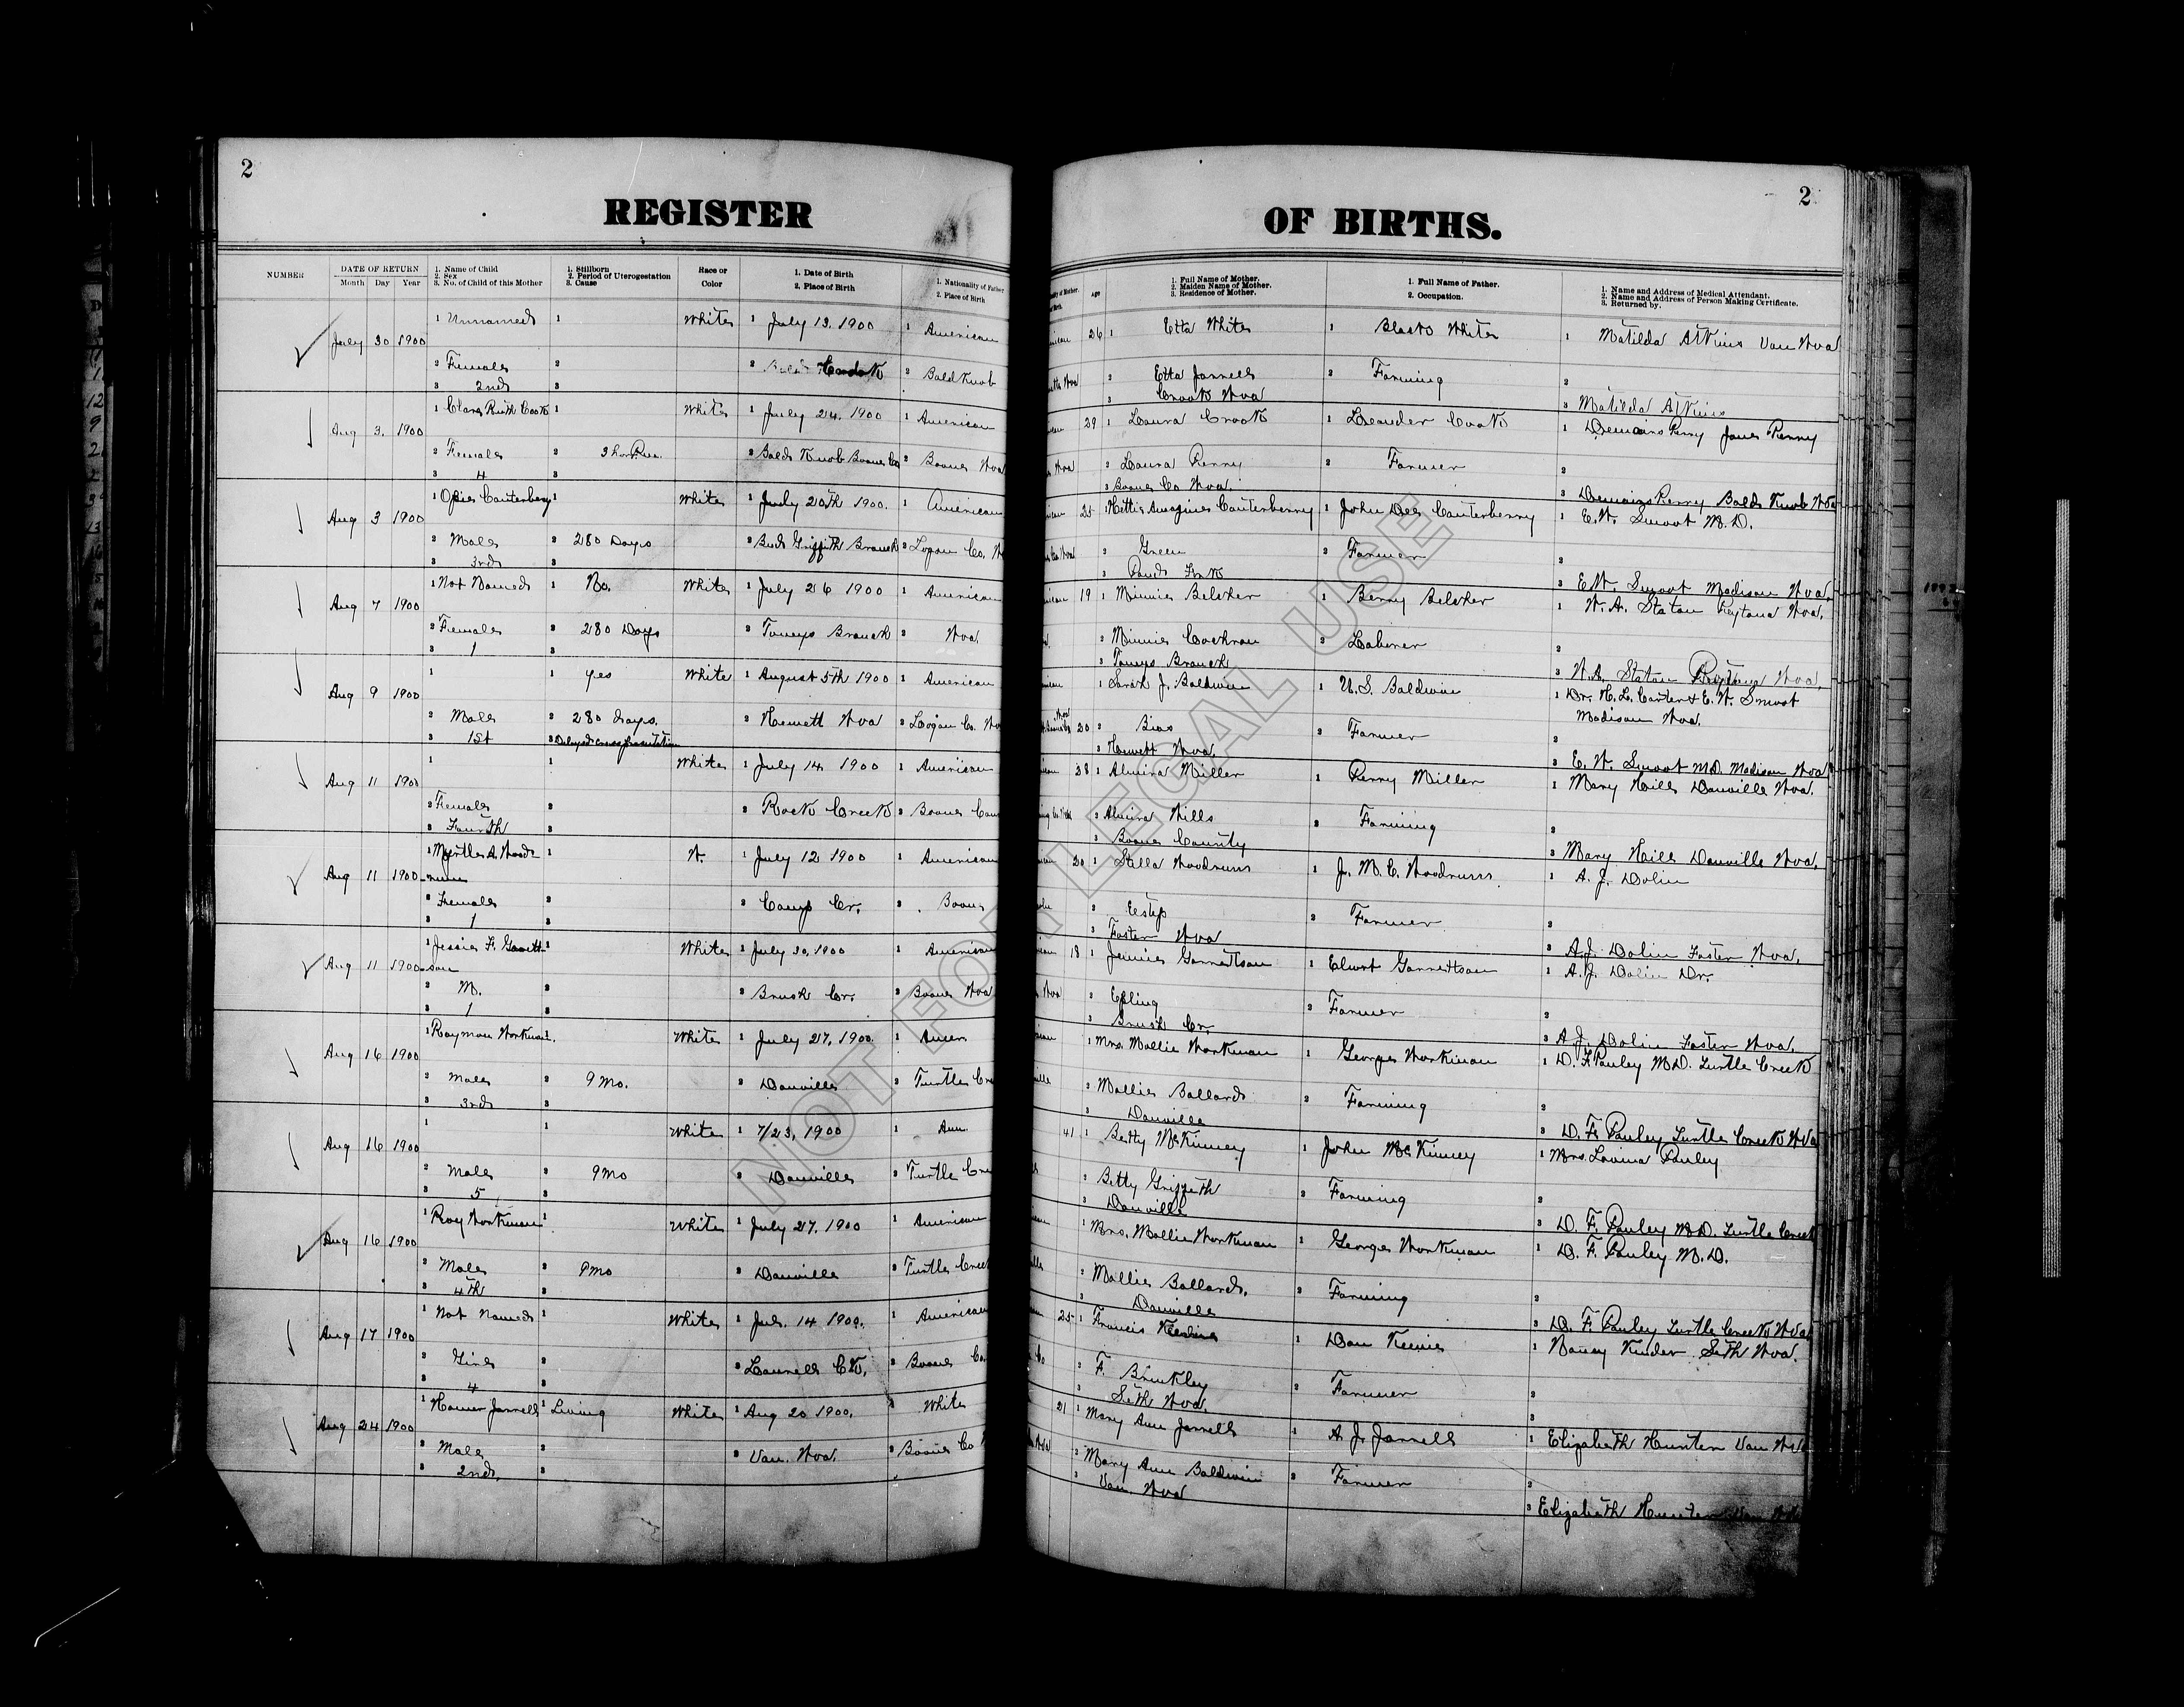 2
REGISTER
NUMBER
DATE OF RETURN
Month Day Year
1. Name of Child
2. Sex
3. No. of Child of this Mother
1. Stillborn
2. Period of Uterogestation
3. Cause
Race or
Color
1. Date of Birth
2. Place of Birth
1. Nationality of Father
2. Place of Birth
July 30 1900
1 Unnamed 1 White 1 July 13, 1900 1 American
2 Female 2 2 Bald 2 Bald Knob
3 2nd 3
Aug 3. 1900
1 Clara Ruth Cook 1 White 1 July 24. 1900 1 American
2 Female 2 2 Bald Knob Boone Co 2 Boone Wva
3 4 3
Aug 3 1900
1 Opie Canterberry 1 White 1 July 20th 1900. 1 American
2 Male 2 280 Days 2 Bud Griffith Branch 2 Logan Co.
3 3rd 3
Aug 7 1900
1 Not Named 1 No. White 1 July 26 1900 1 American
2 Female 2 280 Days 2 Toneys Branch 2 Wva
3 1 3
Aug 9 1900
1 1 yes White 1 August 5th 1900 1 American
2 Male 2 280 days. 2 Hewett Wva 2 Logan Co. Wva
3 1st 3
Aug 11 1900
1 1 White 1 July 14 1900 1 American
2 Female 2 2 Rock Creek 2 Boone
3 Fourth 3
Aug 11 1900
1 Myrtle A. Wood- 1 W. 1 July 12 1900 1 American
rum
2 Female 2 2 Camp Cr. 2 Boone
3 1 3
Aug 11 1900
1 Jessie F. Garrett- 1 White 1 July 30, 1900 1 American
son
2 M. 2 2 Brush Cr. 2 Boone Wva
3 1 3
Aug 16 1900
1 Raymon Workman 1 White 1 July 27, 1900. 1 Amer
2 Male 2 9 Mo. 2 Danville 2 Turtle
3 3rd 3
Aug 16 1900
1 1 White 1 7/23, 1900 1 Am
2 Male 2 9 Mo 2 Danville 2 Turtle
3 5 3
Aug 16 1900
1 Roy Workman 1 White 1 July 27, 1900 1 American
2 Male 2 9 Mo 2 Danville 2 Turtle Creek
3 4th 3
Aug 17 1900
1 Not Named 1 White 1 Jul. 14 1900. 1 American
2 Girl 2 2 Laurell Ck. 2 Boone Co.
3 4 3
Aug 24 1900
1 Homer Jarrell 1 Living White 1 Aug 20 1900. 1 White
2 Male 2 2 Van. Wva. 2 Boone Co
3 2nd. 3
2
OF BIRTHS.
Age
1. Full Name of Mother.
2. Maiden Name of Mother.
3. Residence of Mother.
1. Full Name of Father.
2. Occupation.
1. Name and Address of Medical Attendant.
2. Name and Address of Person Making Certificate.
3. Returned by.
26 1 Etta White 1 White 1 Matilda Atkins Van Wva
2 Etta Jarrell 2 Farming 2
3 Crook Wva 3 Matilda Atkins
29 1 Laura Crook 1 Leander Cook 1 Perry
2 Laura Perry 2 Farmer 2
3 Boone Co Wva. 3 Perry Bald Knob Wva
25 1 Hettie Canterberry 1 John Dee Canterberry 1 E.W. Smoot M.D.
2 Green 2 Farmer 2
3 Pond Fork 3 E.W. Smoot Madison Wva
19 1 Minnie Belcher 1 Benny Belcher 1 W. A. Staton Peytona Wva.
2 Minnie Cochran 2 Laborer 2
3 Toneys Branch 3 W.A. Staton Peytona Wva.
20 1 Sarah J. Baldwin 1 U.S. Baldwin 1 Dr. H. L. Carter & E. W. Smoot
Madison Wva.
2 Bias 2 Farmer 2
3 Hewett Wva 3 E. W. Smoot M.D. Madison Wva
28 1 Almira Miller 1 Perry Miller 1 Mary Hill Danville Wva.
2 Almira Wills 2 Farming 2
3 Boone County 3 Mary Hill Danville Wva.
20 1 Stella Woodrum 1 J. M. C. Woodrum 1 A. J. Dolin
2 Estep 2 Farmer 2
3 Foster Wva 3 A.J. Dolin Foster Wva.
18 1 Jennie Garrettson 1 Garrettson 1 A. J. Dolin Dr.
2 Epling 2 Farmer 2
3 Brush Cr. 3 A. J. Dolin Foster Wva.
1 Mrs. Mollie Workman 1 George Workman 1 D. F. Pauley M.D. Turtle Creek
2 Mollie Ballard 2 Farming 2
3 Danville 3 D. F. Pauley Turtle Creek Wva
41 1 Betty McKinney 1 John McKinney 1 Mrs. Lovina Pauley
2 Betty Griffith 2 Farming 2
3 Danville 3 D. F. Pauley M.D. Turtle Creek
1 Mrs. Mollie Workman 1 George Workman 1 D. F. Pauley M.D.
2 Mollie Ballard. 2 Farming 2
3 Danville 3 D. F. Pauley Turtle Creek Wva
25 1 Francis 1 Dan 1 Nancy Kinder Seth Wva.
2 F. Brinkley 2 Farmer 2
3 Seth Wva. 3
21 1 Mary Ann Jarrell 1 A. J. Jarrell 1 Elizabeth Hunter Van Wva
2 Mary Ann Baldwin 2 Farmer 2
3 Van. Wva 3 Elizabeth Hunter Van
NOT FOR LEGAL USE